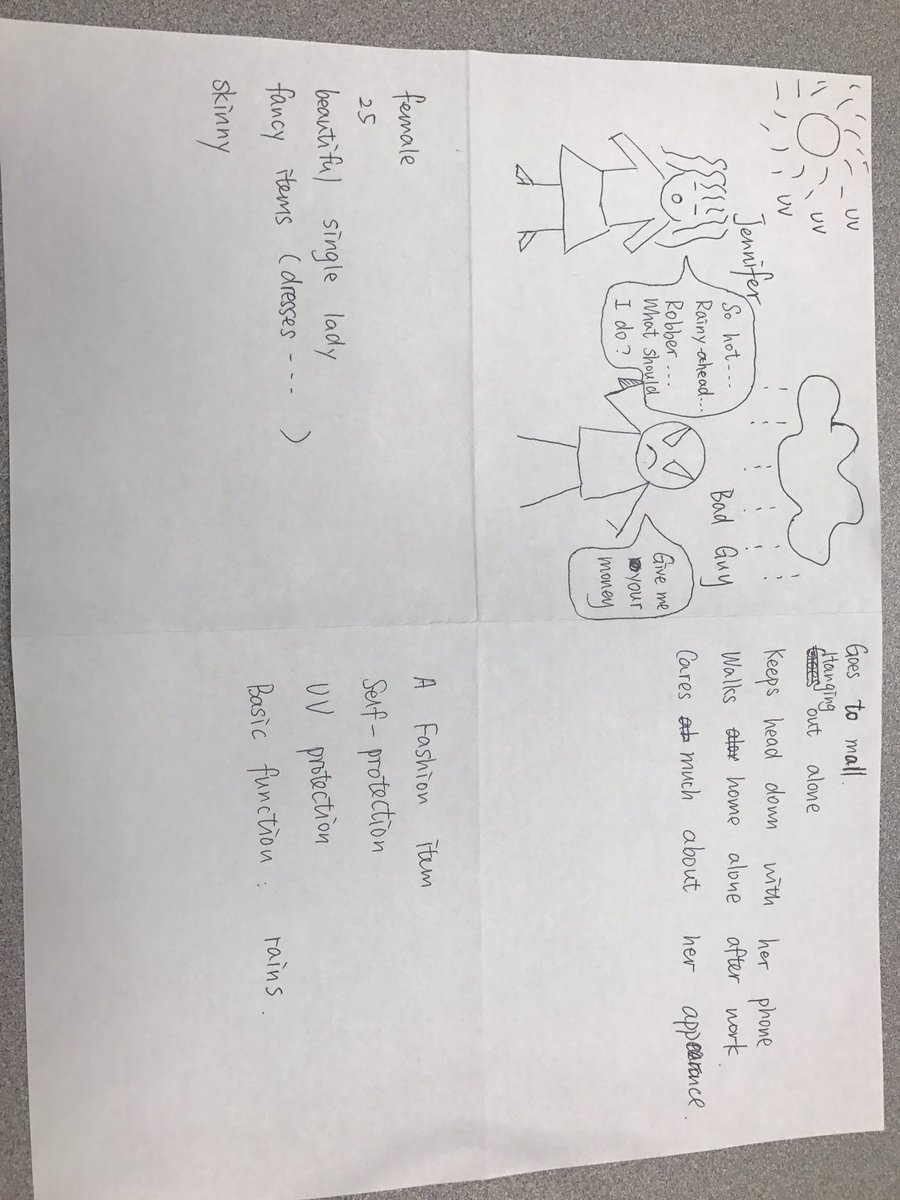 UV
UV
UV
Jennifer
So hot---
Rainy-ahead...
Robber ...
What should
I do?
Bad Guy
Give me
your
money
Goes to mall.
Hanging out alone
Keeps head down with her phone
Walks home alone after work.
Cares much about her appearance.
female
25
beautiful single lady
fancy items (dresses ---- )
skinny
A Fashion item
Self-protection
UV protection
Basic function : rains.